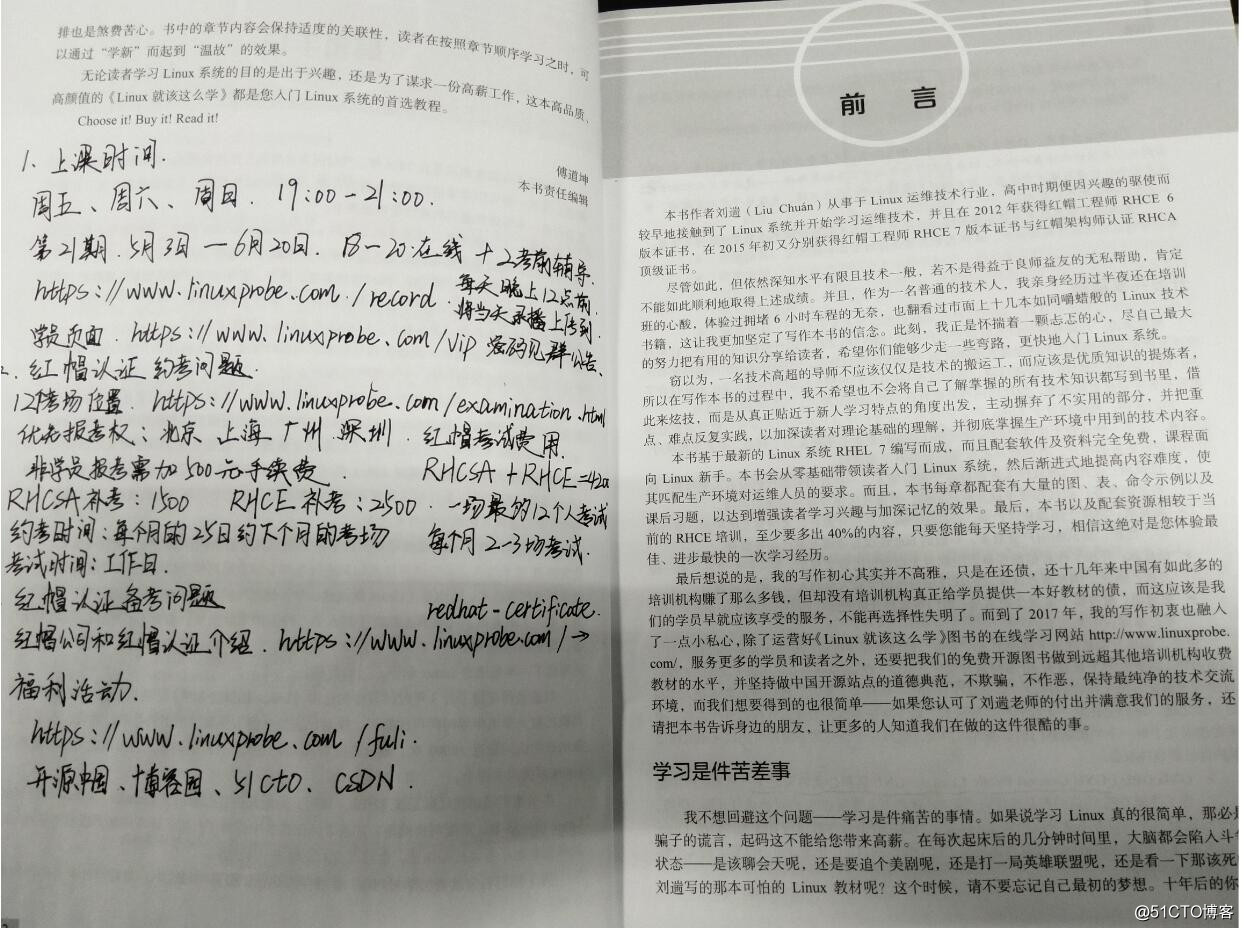 排也是煞费苦心。书中的章节内容会保持适度的关联性，读者在按照章节顺序学习之时，可
以通过“学新”而起到“温故”的效果。
无论读者学习 Linux 系统的目的是出于兴趣，还是为了谋求一份高薪工作，这本高品质、
高颜值的《Linux 就该这么学》都是您入门 Linux 系统的首选教程。
Choose it! Buy it! Read it!
傅道坤
本书责任编辑
1. 上课时间.
周五、周六、周日. 19:00-21:00.
第21期. 5月3日 — 6月20日. 18-20.在线 + 2考前辅导.
https://www.linuxprobe.com/record. 每天晚上12点前
将当天录播上传到
学员页面. https://www.linuxprobe.com/vip 密码见群公告、
2. 红帽认证约考问题.
12个考场位置. https://www.linuxprobe.com/examination.html
优先报考权: 北京 上海 广州 深圳. 红帽考试费用.
非学员报考需加500元手续费 RHCSA + RHCE=4200
RHCSA补考: 1500 RHCE补考: 2500. 一场最多12个人考试
约考时间: 每个月的25日约下个月的考场 每个月2-3场考试.
考试时间: 工作日.
红帽认证备考问题
redhat-certificate.
红帽公司和红帽认证介绍. https://www.linuxprobe.com/→
福利活动.
https://www.linuxprobe.com/fuli.
开源中国、博客园、51CTO、CSDN.
前 言
本书作者刘遄（Liu Chuán）从事于 Linux 运维技术行业，高中时期便因兴趣的驱使而
较早地接触到了 Linux 系统并开始学习运维技术，并且在 2012 年获得红帽工程师 RHCE 6
版本证书，在 2015 年初又分别获得红帽工程师 RHCE 7 版本证书与红帽架构师认证 RHCA
顶级证书。
尽管如此，但依然深知水平有限且技术一般，若不是得益于良师益友的无私帮助，肯定
不能如此顺利地取得上述成绩。并且，作为一名普通的技术人，我亲身经历过半夜还在培训
班的心酸，体验过拥堵 6 小时车程的无奈，也翻看过市面上十几本如同嚼蜡般的 Linux 技术
书籍，这让我更加坚定了写作本书的信念。此刻，我正是怀揣着一颗忐忑的心，尽自己最大
的努力把有用的知识分享给读者，希望你们能够少走一些弯路，更快地入门 Linux 系统。
窃以为，一名技术高超的导师不应该仅仅是技术的搬运工，而应该是优质知识的提炼者，
所以在写作本书的过程中，我不希望也不会将自己了解掌握的所有技术知识都写到书里，借
此来炫技，而是从真正贴近于新人学习特点的角度出发，主动摒弃了不实用的部分，并把重
点、难点反复实践，以加深读者对理论基础的理解，并彻底掌握生产环境中用到的技术内容。
本书基于最新的 Linux 系统 RHEL 7 编写而成，而且配套软件及资料完全免费，课程面
向 Linux 新手。本书会从零基础带领读者入门 Linux 系统，然后渐进式地提高内容难度，使
其匹配生产环境对运维人员的要求。而且，本书每章都配套有大量的图、表、命令示例以及
课后习题，以达到增强读者学习兴趣与加深记忆的效果。最后，本书以及配套资源相较于当
前的 RHCE 培训，至少要多出 40%的内容，只要您能每天坚持学习，相信这绝对是您体验最
佳、进步最快的一次学习经历。
最后想说的是，我的写作初心其实并不高雅，只是在还债，还十几年来中国有如此多的
培训机构赚了那么多钱，但却没有培训机构真正给学员提供一本好教材的债，而这应该是我
们的学员早就应该享受的服务，不能再选择性失明了。而到了 2017 年，我的写作初衷也融入
了一点小私心，除了运营好《Linux 就该这么学》图书的在线学习网站 http://www.linuxprobe.
com/，服务更多的学员和读者之外，还要把我们的免费开源图书做到远超其他培训机构收费
教材的水平，并坚持做中国开源站点的道德典范，不欺骗，不作恶，保持最纯净的技术交流
环境，而我们想要得到的也很简单——如果您认可了刘遄老师的付出并满意我们的服务，还
请把本书告诉身边的朋友，让更多的人知道我们在做的这件很酷的事。
学习是件苦差事
我不想回避这个问题——学习是件痛苦的事情。如果说学习 Linux 真的很简单，那必是
骗子的谎言，起码这不能给您带来高薪。在每次起床后的几分钟时间里，大脑都会陷入斗争
状态——是该聊会天呢，还是要追个美剧呢，还是打一局英雄联盟呢，还是看一下那该死
刘遄写的那本可怕的 Linux 教材呢？这个时候，请不要忘记自己最初的梦想。十年后的你
@51CTO博客